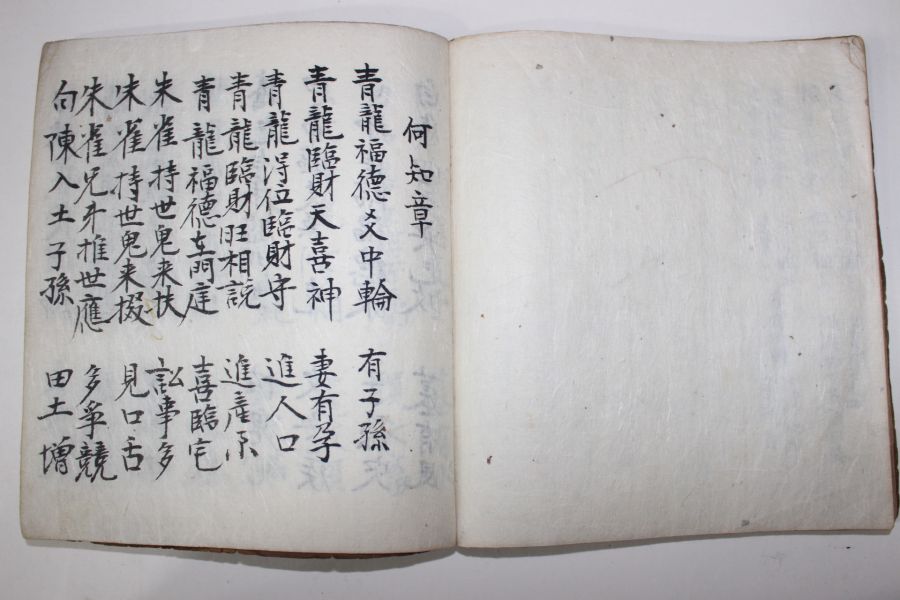 何知章
青龍福德爻中輪 有子孫
青龍臨財天喜神 妻有孕
青龍得位臨財守 進人口
青龍臨財旺相說 進産
青龍福德在門庭 喜臨宅
朱雀持世鬼来扶 訟事多
朱雀持世鬼来掇 見口舌
朱雀兄弟推世應 多爭競
白陳入土子孫 田土增